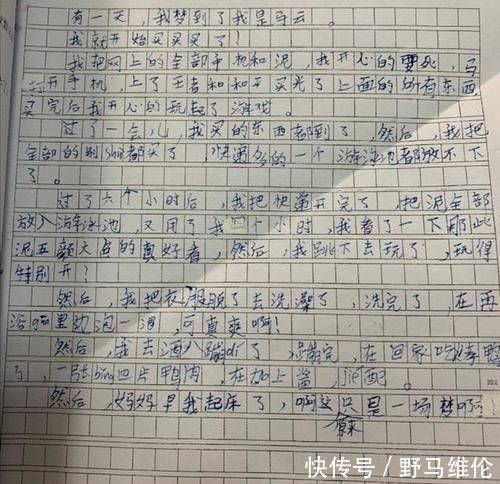 有一天，我梦到了我是马云。
我就开始买买买了！
我把网上的全部手机和泥，我开心的要死，马
开手机，上了王者和和平买光了上面的所有东西
买完后我开心的玩起了游戏。
过了一会儿，我买的东西都到了，然后，我把
全部的别shu都买了，快递多的一个游泳池都放不下
了。
过了六个小时后，我把快递开完了，把泥全部
放入游泳池，又用了我四个小时，我看了一下那此
泥五颜六色的真好看，然后，我跳下去玩了，玩得
特别开？
然后，我把衣服脱了去洗澡了，洗完了，在再
浴gang里边泡一泪，可真爽啊！
然后，我去酒八蹦di了，蹦完，在回家吃烤鸭
了，一张bing四片鸭肉，在加上酱，jue配。
然后，妈妈早我起床了，啊这只是一场梦啊
原来
快传号／野马维伦